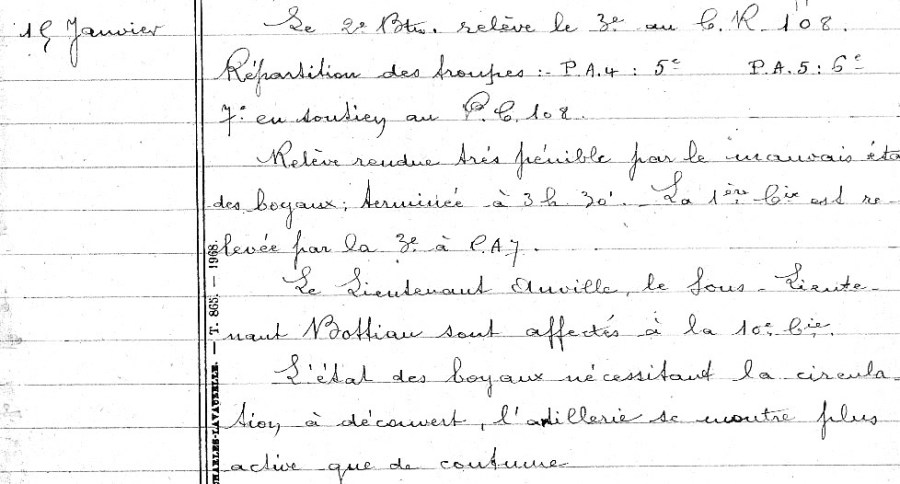 15 Janvier
Le 2e Btn. relève le 3e au C.R. 108.
Répartition des troupes :- P.A.4 : 5e P.A.5 : 6e
7e en soutien au P.C. 108.
Relève rendue très pénible par le mauvais éta
des boyaux ; terminée à 3 h 30'. - La 1ère Cie est re-
levée par la 3e à P.A 7.
Le Lieutenant Anville, le Sous-Lieute-
nant Bottiau sont affectés à la 10e Cie.
L'état des boyaux nécessitant la circula-
tion à découvert, l'artillerie se montre plus
active que de coutume
CHARLES-LAVAUZELLE. — T. 865. — 1968.